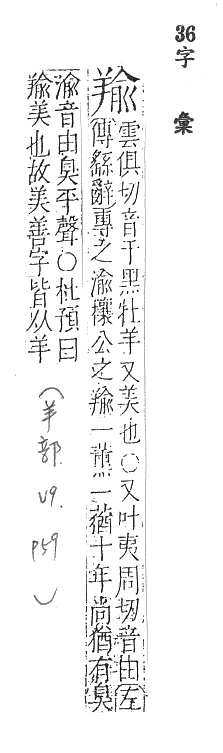 36
字彙
羭雲俱切音于黑牡羊又美也〇又叶夷周切音由左
傳繇辭專之渝攘公之羭一薰一蕕十年尚猶有臭
渝音由臭平聲〇杜預曰
羭美也故美善字皆从羊
(羊部 U9. P59)